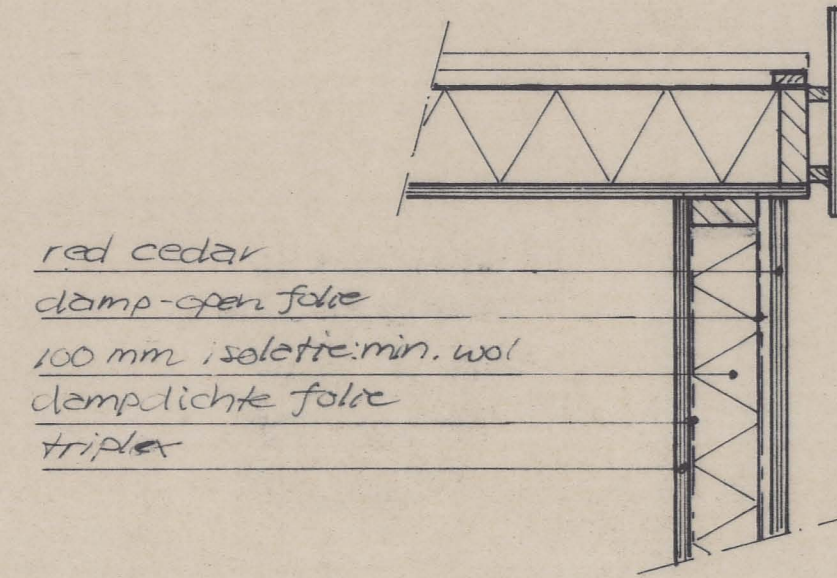 red cedar
damp-open folie
100 mm isolatie:min. wol
dampdichte folie
triplex